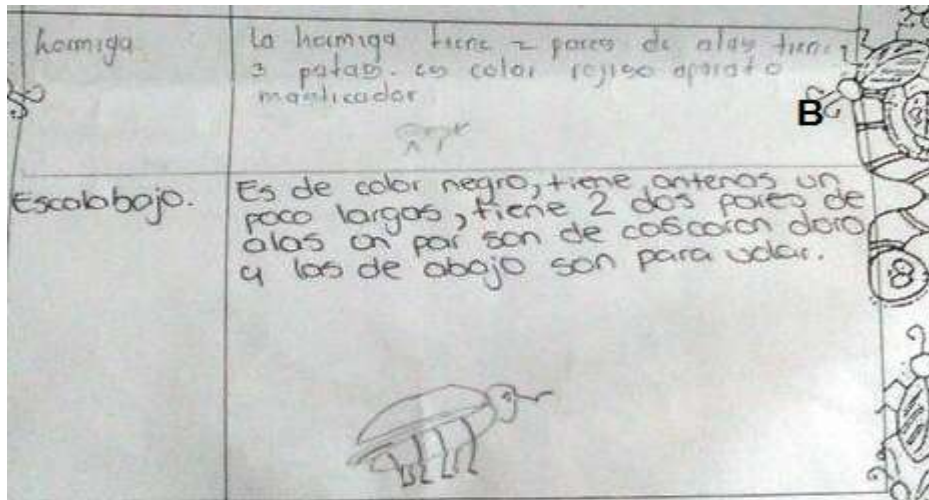 hormiga
la hormiga tiene 2 pares de alas tiene
3 patas. es color rojiso aparato
masticador
B
Escalabajo.
Es de color negro, tiene antenas un
poco largas, tiene 2 dos pares de
alas un par son de coscaron duro
y las de abajo son para volar.
8